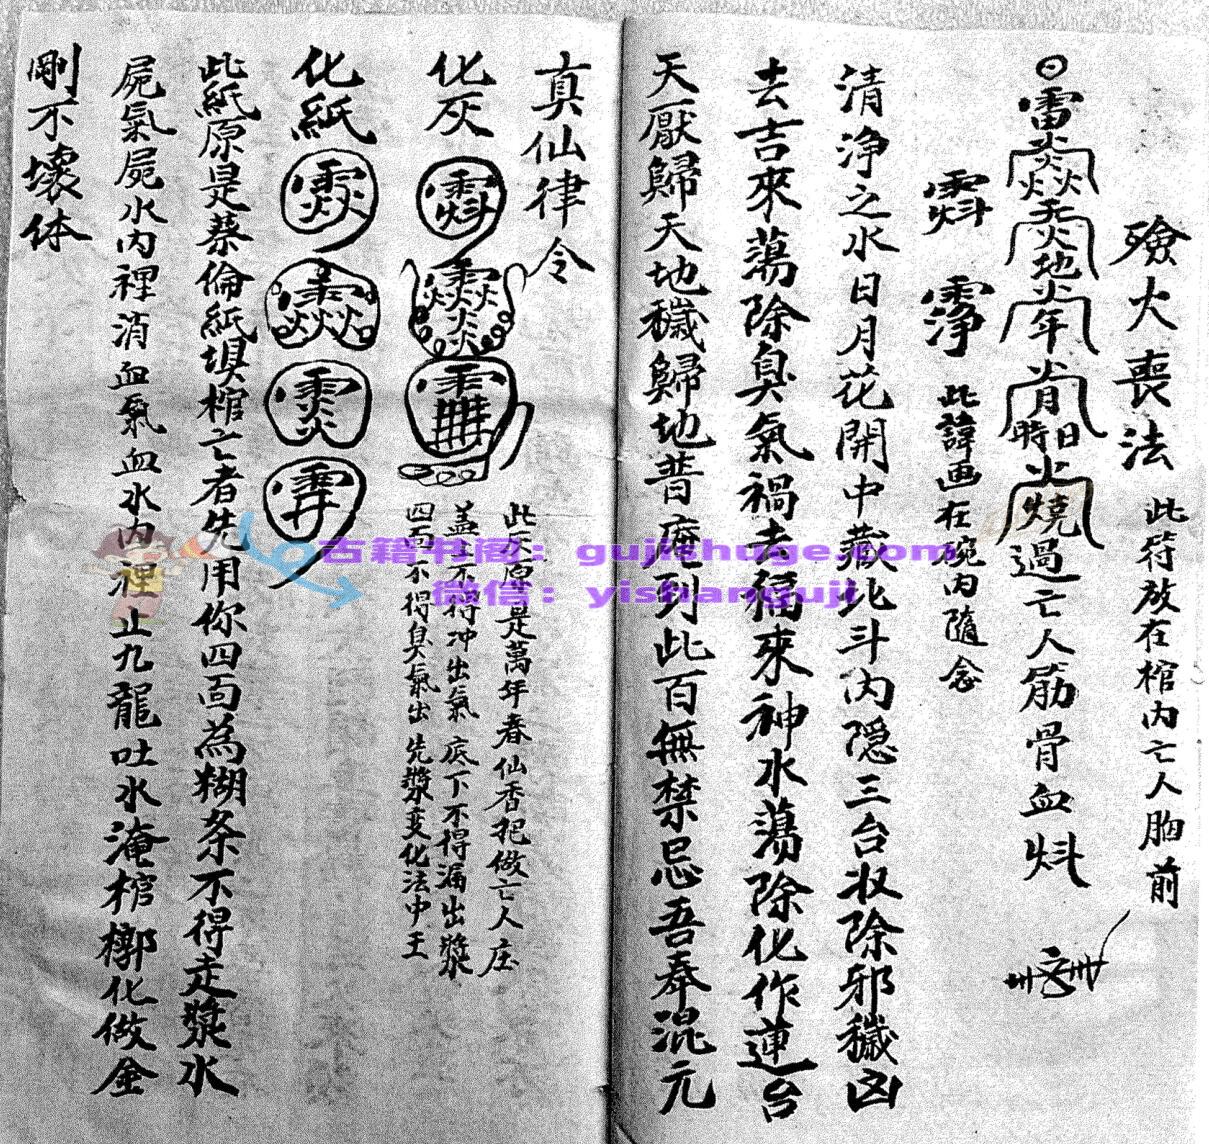 殮大喪法
此符放在棺內亡人胸前
燒過亡人筋骨血
此諱画在碗內隨念
清淨之水日月花開中藏北斗內隱三台収除邪穢凶
去吉來蕩除臭氣禍去福來神水蕩除化作蓮台
天厭歸天地穢歸地普庵到此百無禁忌吾奉混元
真仙律令
化灰
此灰原是萬年春仙香把做亡人庄
盖上不得冲出氣底下不得漏出漿
四面不得臭氣出先漿变化法中王
化紙
此紙原是蔡倫紙填棺亡者先用你四面為糊条不得走漿水
屍氣屍水內裡消血氣血水內裡止九龍吐水淹棺槨化做金
剛不壞体
古籍书阁：gujishuge.com
微信：yishanguji